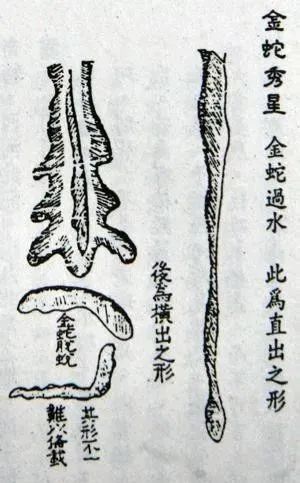 金蛇秀星 金蛇過水 此為直出之形
後為橫出之形
金蛇脫蛻
其形不一
難以俻載